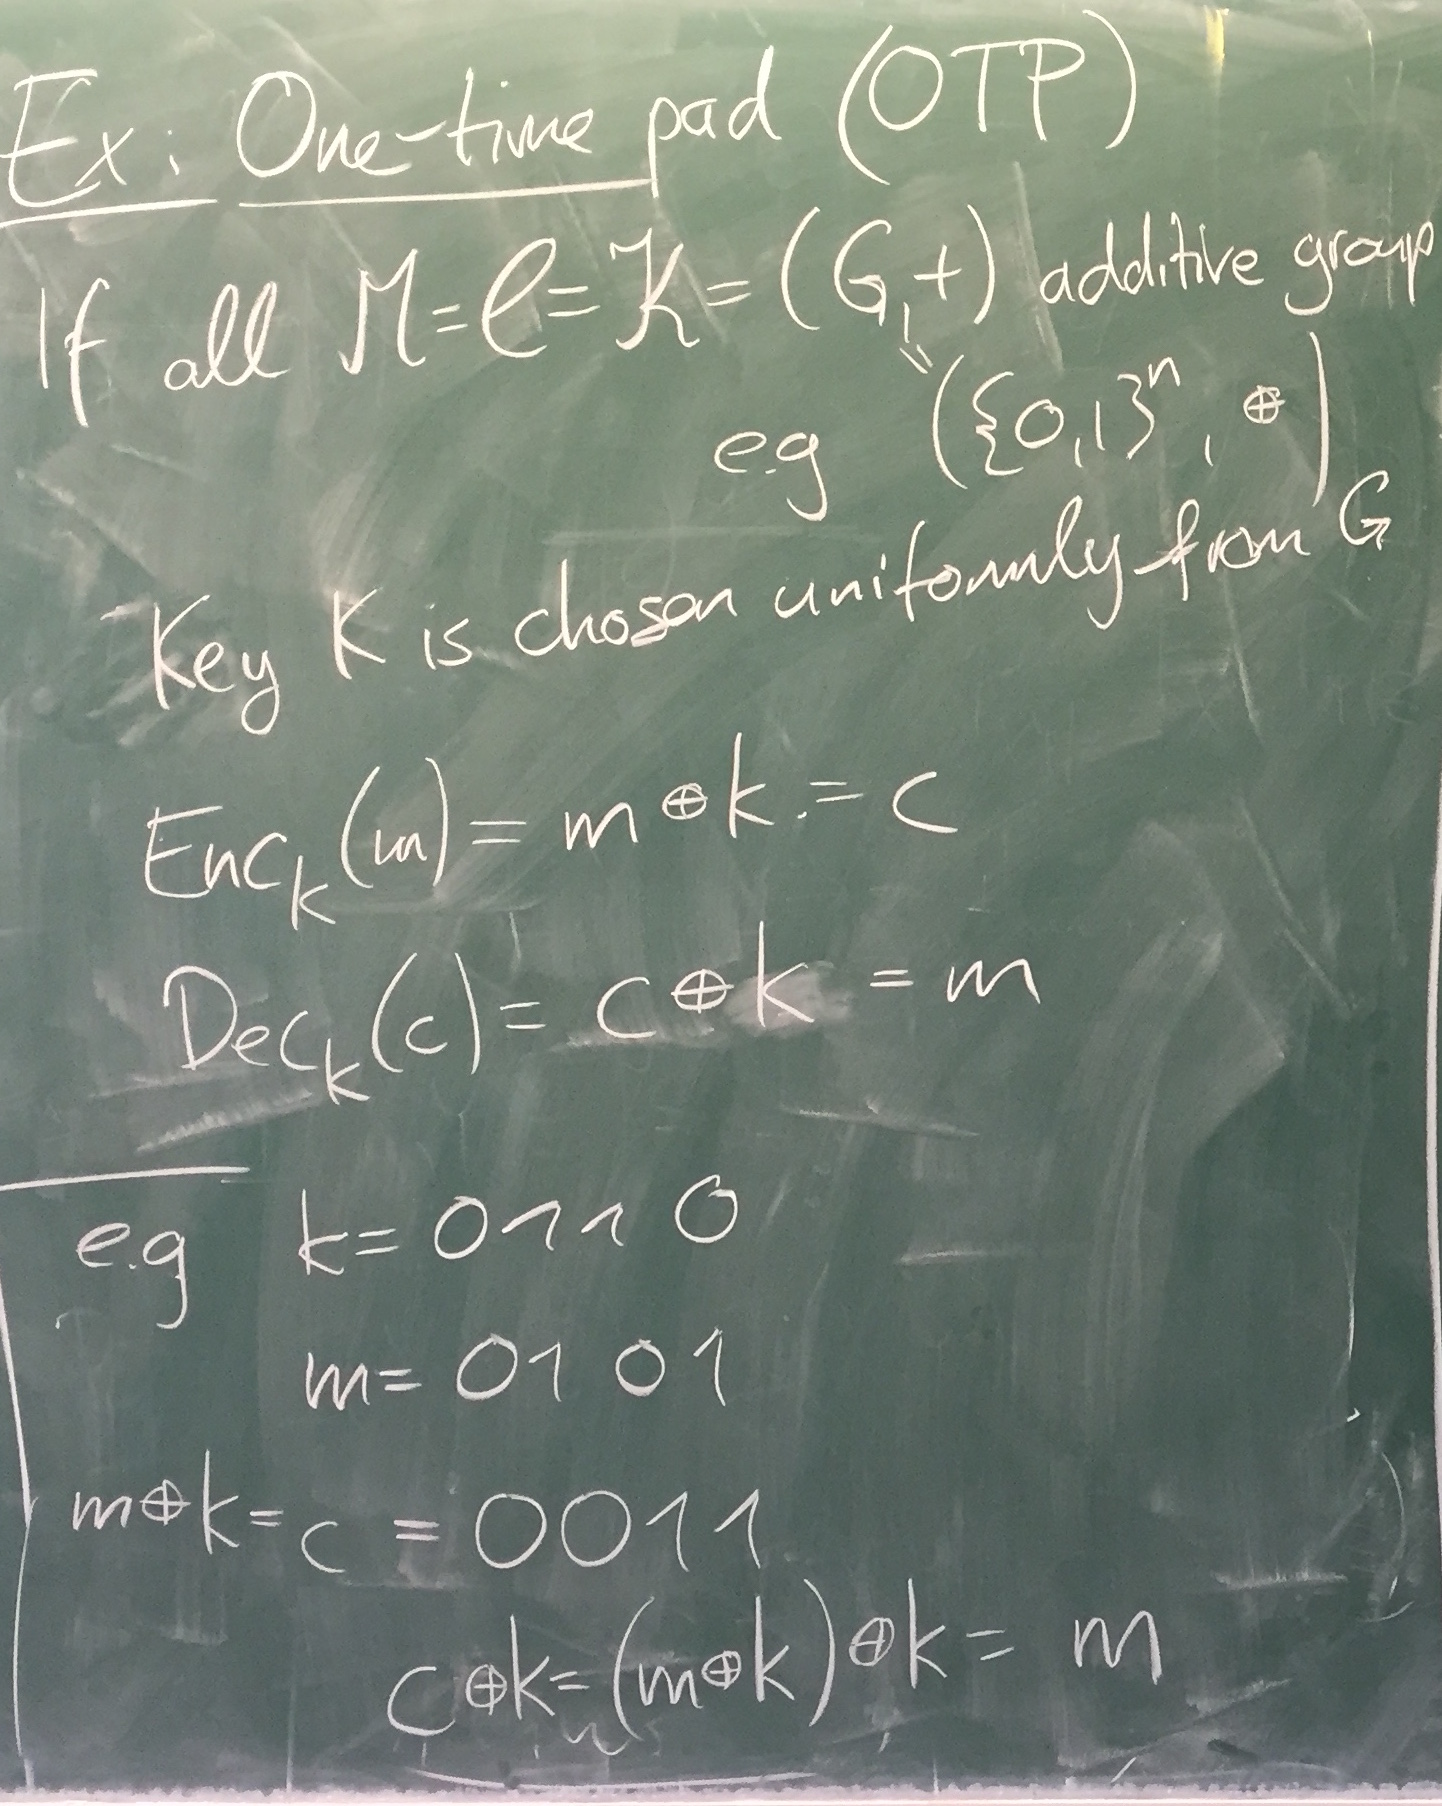 Ex: One-time pad (OTP)
If all ℳ=𝒞=𝒦=(G,+) additive group
e.g ({0,1}ⁿ, ⊕)
Key K is chosen uniformly from G
Enc_k(m) = m⊕k := c
Dec_k(c) = c⊕k = m
e.g k= 0110
m= 0101
m⊕k= c = 0011
c⊕k=(m⊕k)⊕k= m